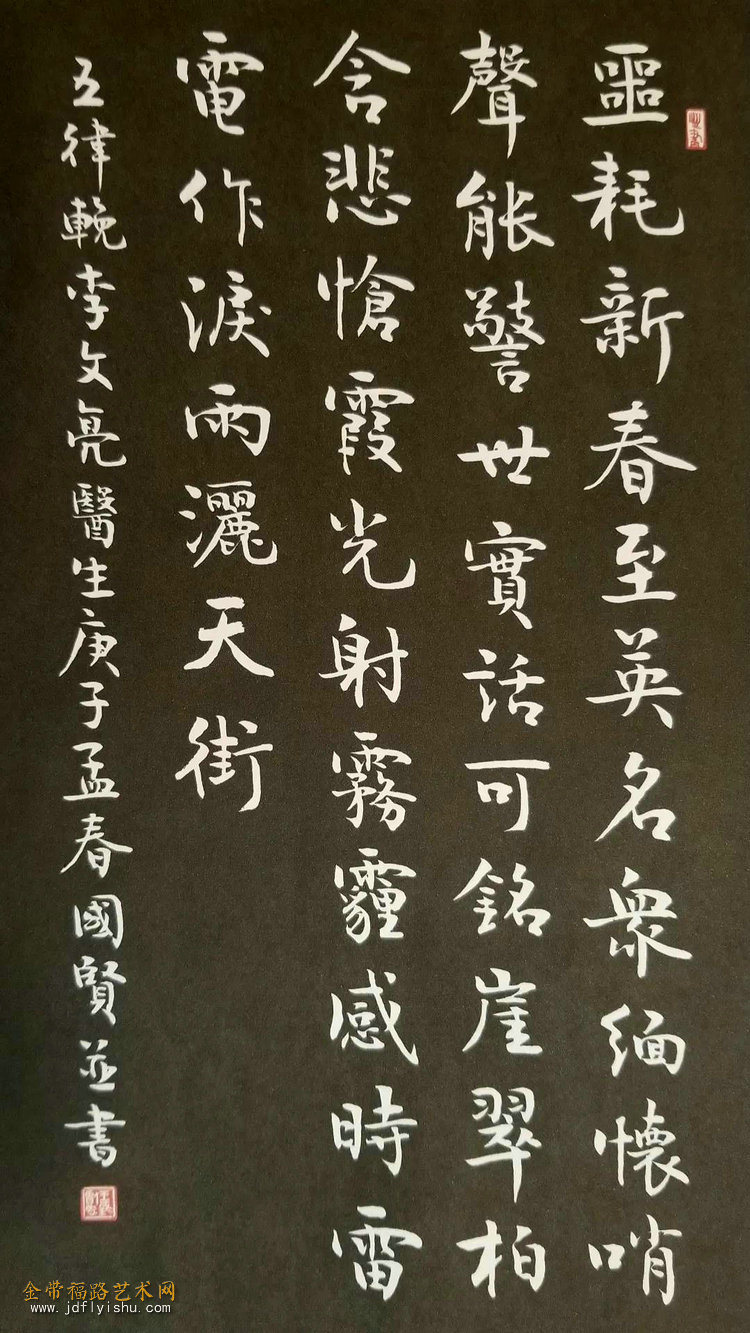 噩耗新春至英名衆緬懷哨
聲能警世實話可銘崖翠柏
含悲愴霞光射霧霾感時雷
電作淚雨灑天街
五律輓李文亮醫生庚子孟春國賢並書
金带福路艺术网
www.jdflyishu.com